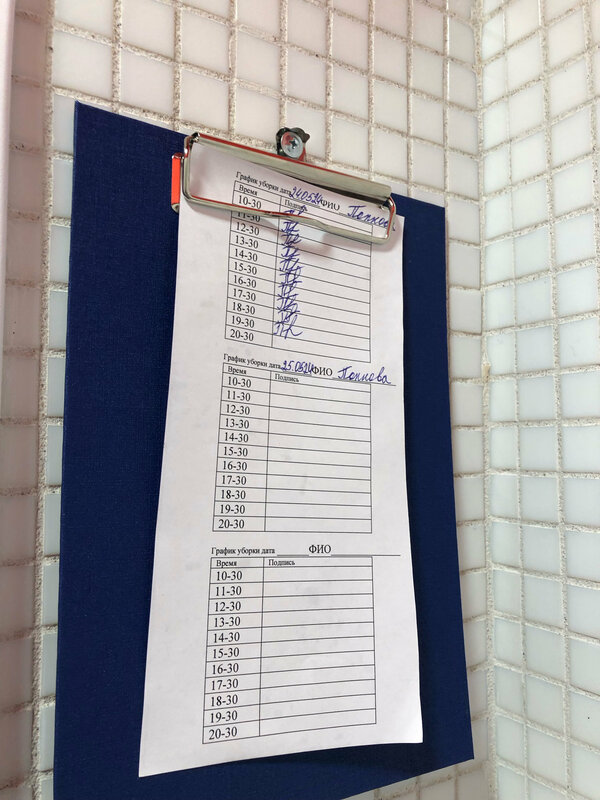 График уборки дата 240524 ФИО Попкова
Время Подпись
10-30
11-30
12-30
13-30
14-30
15-30
16-30
17-30
18-30
19-30
20-30
График уборки дата 25.0524 ФИО Попкова
Время Подпись
10-30
11-30
12-30
13-30
14-30
15-30
16-30
17-30
18-30
19-30
20-30
График уборки дата ФИО
Время Подпись
10-30
11-30
12-30
13-30
14-30
15-30
16-30
17-30
18-30
19-30
20-30